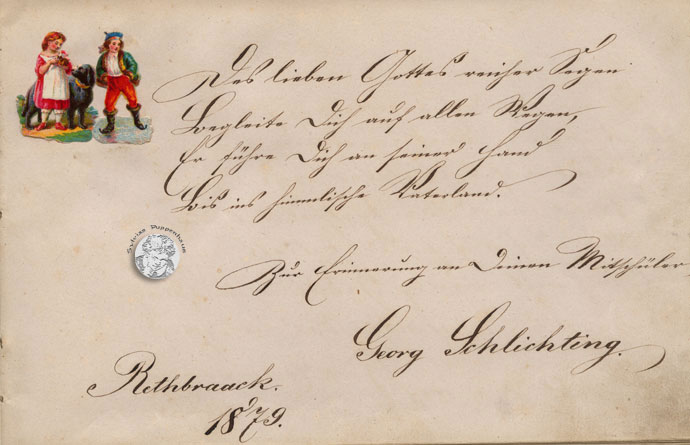 Des lieben Gottes reicher Segen
Begleite Dich auf allen Wegen,
Er führe Dich an seiner Hand
Bis ins himmlische Vaterland.
Zur Erinnerung an Deinen Mitschüler
Georg Schlichting.
Rethbraack.
18 79.
Sylvias Puppenhaus